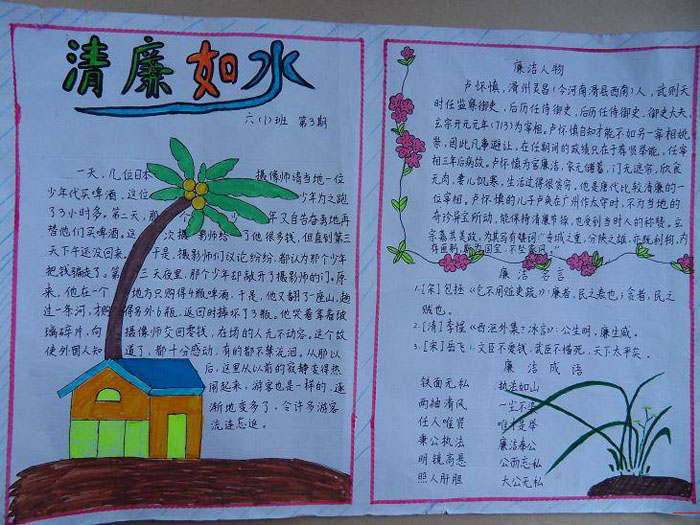 清廉如水
六(1)班 第3期
一天,几位日本摄像师请当地一位
少年代买啤酒,这位少年为之跑
了3小时多。第二天,那个少年又自告奋勇地再
替他们买啤酒。这次摄影师给了他很多钱,但直到第三
天下午还没回来。于是,摄影师们议论纷纷,都认为那个少年
把钱骗走了。第三天夜里,那个少年却敲开了摄影师的门。原
来,他在一个地方只购得4瓶啤酒,于是,他又翻了一座山,趟
过一条河,才购得另外6瓶,返回时摔坏了3瓶。他哭着拿着玻
璃碎片,向摄像师交回零钱,在场的人无不动容。这个故
使外国人知道了,都十分感动,有的都不禁流泪。从那以
后,这里从以前的寂静变得热
闹起来,游客也是一样的,逐
渐地变多了,令许多游客
流连忘返。
廉洁人物
卢怀慎,滑州灵昌(今河南滑县西南)人,武则天
时任监察御史,后历任侍御史,后历任侍御史、御史大夫,
玄宗开元元年(713)为宰相。卢怀慎自知才能不如另一宰相姚
崇,因此凡事避让,在任期间的政绩只在于荐贤举能,任宰
相三年后病故。卢怀慎为官廉洁,家无储蓄,门无遮帘,饮食
无肉,妻儿饥寒,生活过得很贫穷,他是唐代比较清廉的一
位宰相。卢怀慎的儿子卢奂在广州作太守时,不为当地的
奇珍异宝所动,能保持清廉节操,也受到当时人的称赞。玄
宗嘉其美政,为其写有赞词“专城之重,分陕之雄,亦既利物,内
存匪躬,斯为国宝,不坠家风。”
廉洁名言
1.[宋]包拯《乞不用赃吏疏》:廉者,民之表也;贪者,民之
贼也。
2.[清]李惺《西沤外集?冰言》:公生明,廉生威。
3.[宋]岳飞:文臣不爱钱,武臣不惜死,天下太平矣。
廉洁成语
铁面无私 执法如山
两袖清风 一尘不染
任人唯贤 唯才是举
秉公执法 廉洁奉公
明镜高悬 公而忘私
照人肝胆 大公无私